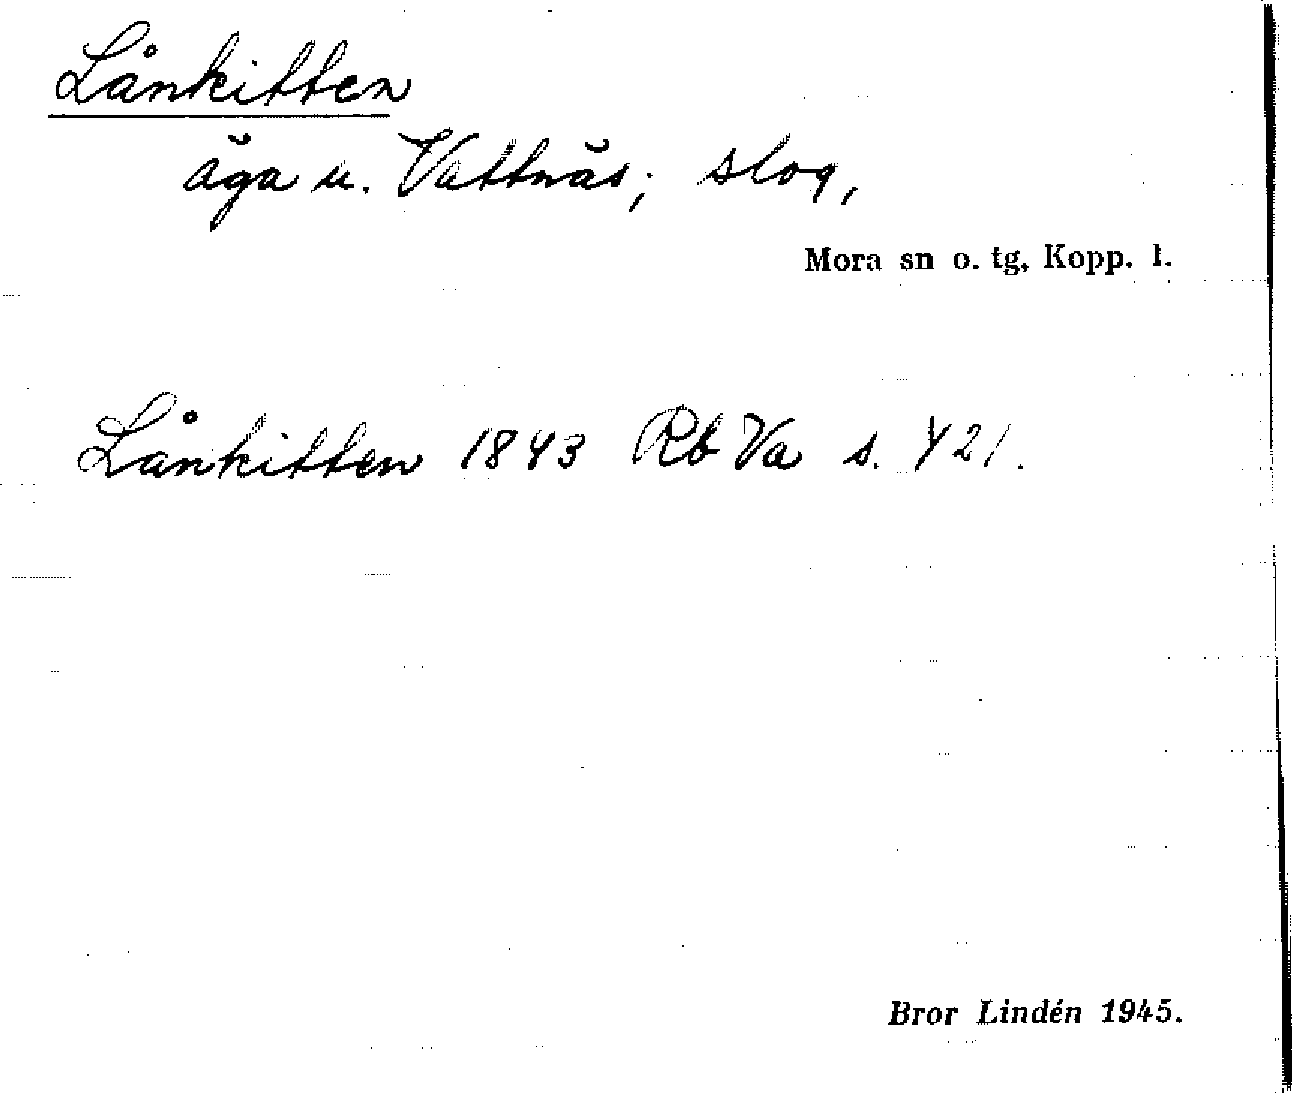 Lånkitten
äga u. Vattnäs; slog,
Mora sn o. tg, Kopp. l.
Lånkitten 1843 Rb Va s. 421.
Bror Lindén 1945.